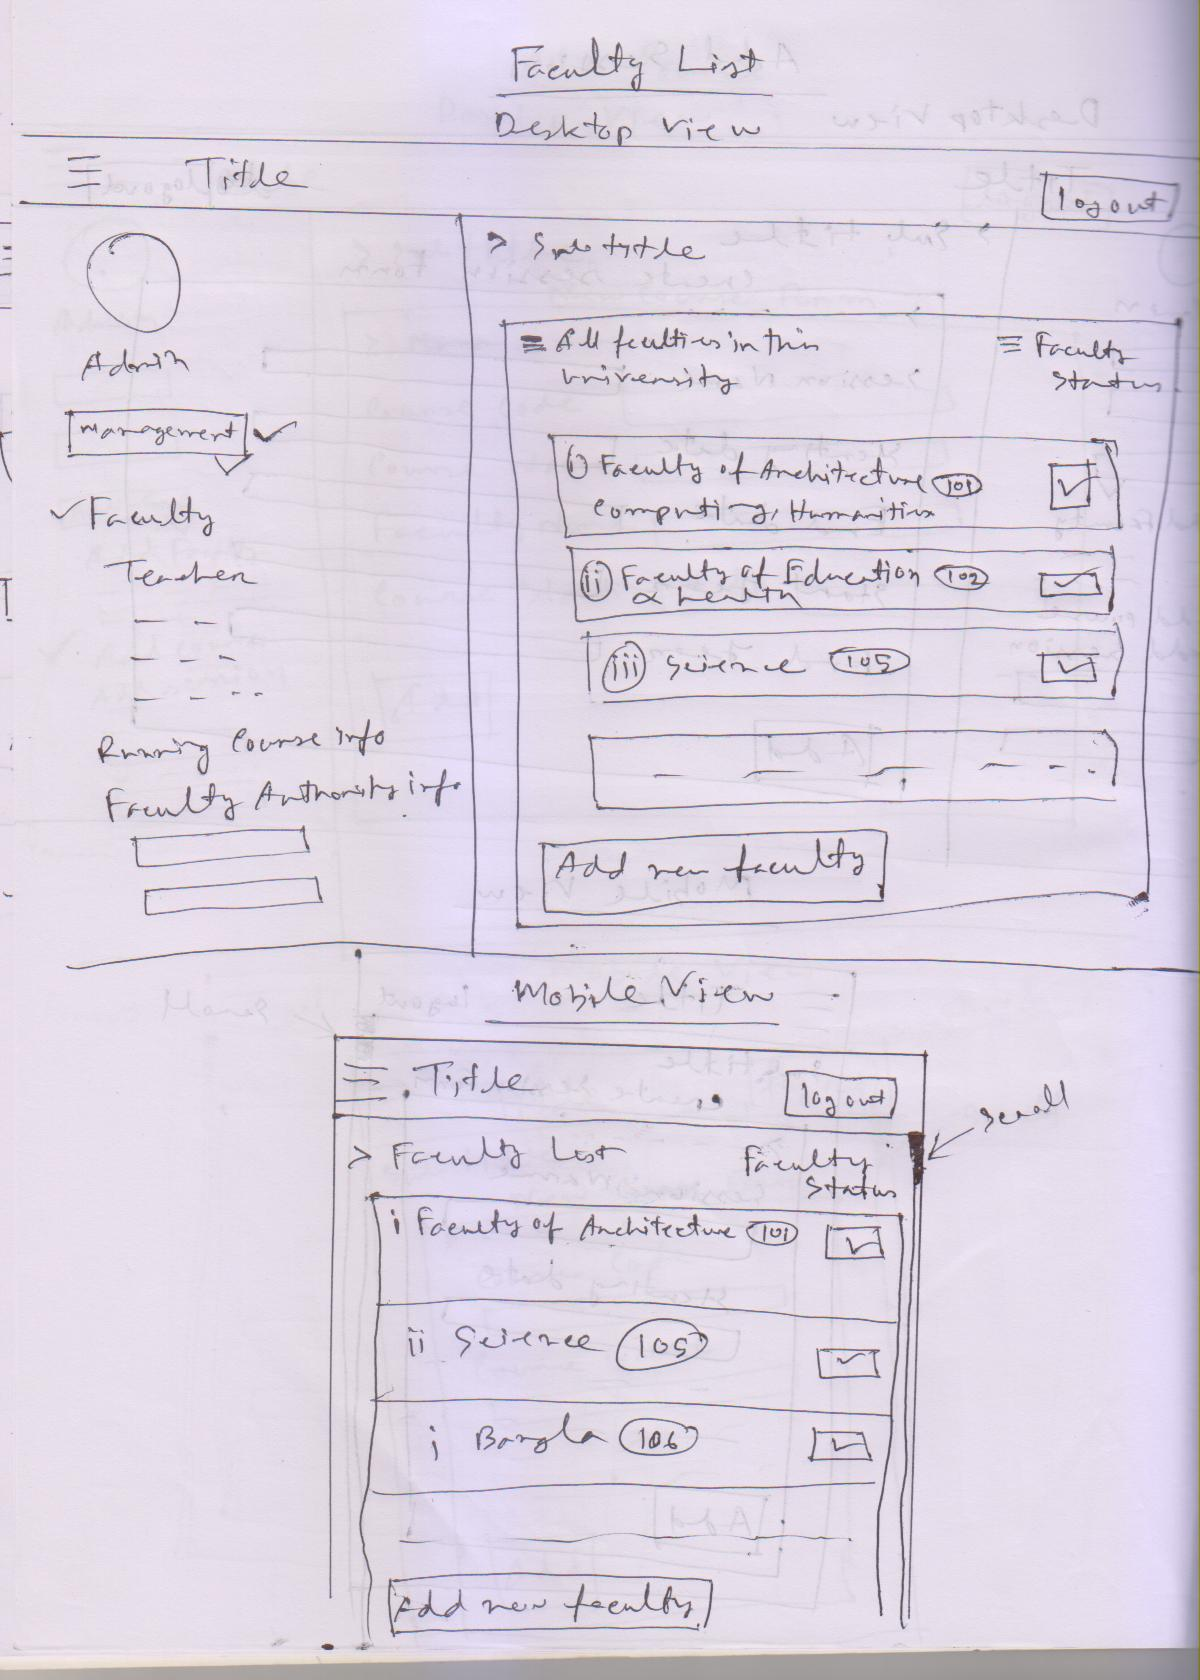 Faculty List
Desktop View
Title
logout
Admin
Management
Faculty
Teacher
Running Course info
Faculty Authority info
> Sub title
All faculties in this
university
Faculty
Status
i) Faculty of Architecture 101
Computing, Humanities
ii) Faculty of Education 102
& health
iii) Science 105
Add new faculty
Mobile View
Title
logout
scroll
> Faculty List
Faculty
Status
i Faculty of Architecture 101
ii Science 105
i Bangla 106
Add new faculty